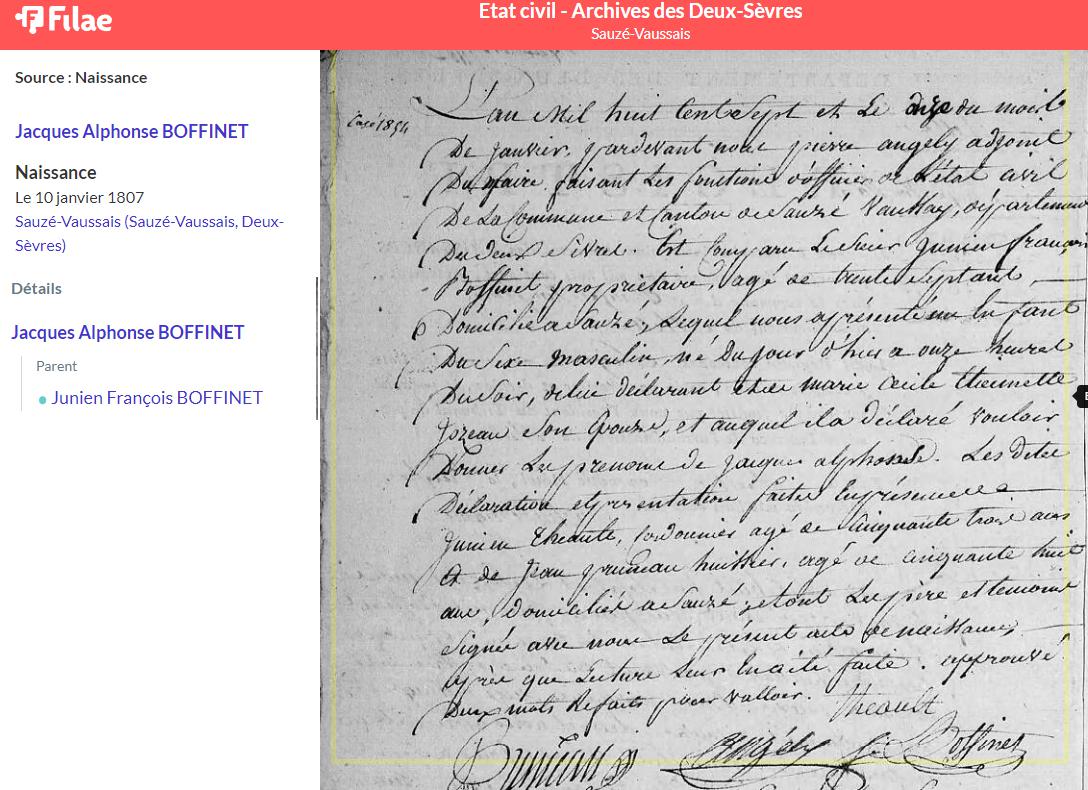 Filae
Etat civil - Archives des Deux-Sèvres
Sauzé-Vaussais
Source : Naissance
Jacques Alphonse BOFFINET
Naissance
Le 10 janvier 1807
Sauzé-Vaussais (Sauzé-Vaussais, Deux-
Sèvres)
Détails
Jacques Alphonse BOFFINET
Parent
Junien François BOFFINET
L'an Mil huit Cent Sept et Le dix du mois
De Janvier, pardevant nous pierre angely adjoint
Du Maire, faisant Les fonctions d'officier de L'état civil
De La Commune et Canton de Sauzé Vaussay, département
Des deux Sèvres. Est Comparu Le Sieur Junien françois
Boffinet propriétaire, agé de trente Sept ans,
Domicilié a Sauzé, Lequel nous a présenté un Enfant
Du Sexe Masculin, né Du jour d'hier a onze heures
Du Soir, de lui déclarant et de marie cecile
Son Epouze, et auquel il a déclaré vouloir
Donner Les prenoms de Jacques alphonse. Les dites
Déclaration et présentation faites En présence de
Junien Theault, Cordonnier agé de Cinquante trois ans
Et de Jean pruneau huissier, agé de cinquante huit
ans, Domiciliés a Sauzé, et ont Les père et temoins
Signés avec nous Le présent acte de naissance,
après que Lecture Leur En a été faite. approuvé
Deux mots Refaits pour valloir. Theault
Angély Boffinet